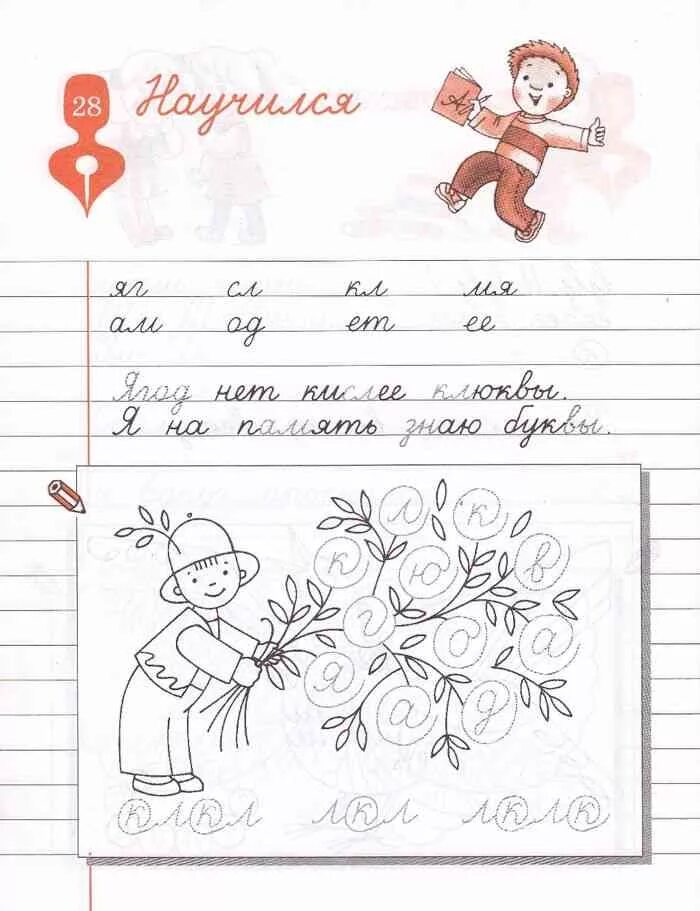 28 Научился
яг сл кл мя
ам од ет ее
Ягод нет кислее клюквы.
Я на память знаю буквы.
л к
к ю в
г о а
я а д
клкл лкл лклк